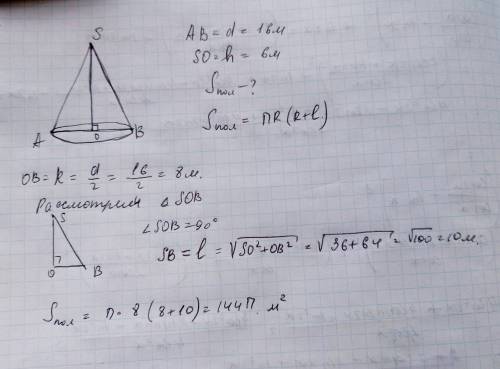 S
A
O
B
AB = d = 16м
SO = h = 6м
Sпол - ?
Sпол = ПR (R+l)
OB = R = d/2 = 16/2 = 8м.
Рассмотрим △ SOB
S
O
B
∠SOB = 90°
SB = l = √SO²+OB² = √36+64 = √100 = 10м.
Sпол = П · 8 (8+10) = 144П м²